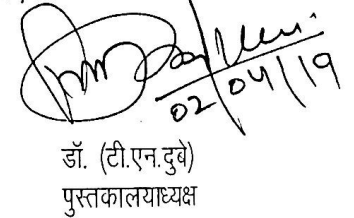 02/04/19
डॉ. (टी.एन.दुबे)
पुस्तकालयाध्यक्ष